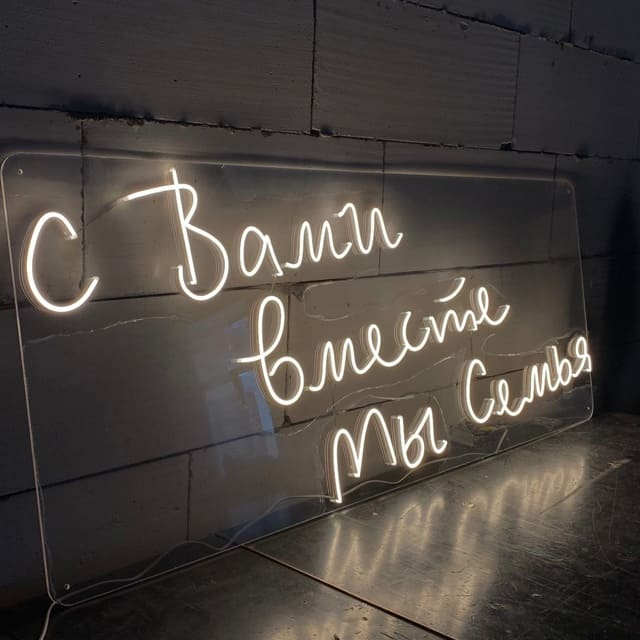 С Вами
вместе
Мы Семья